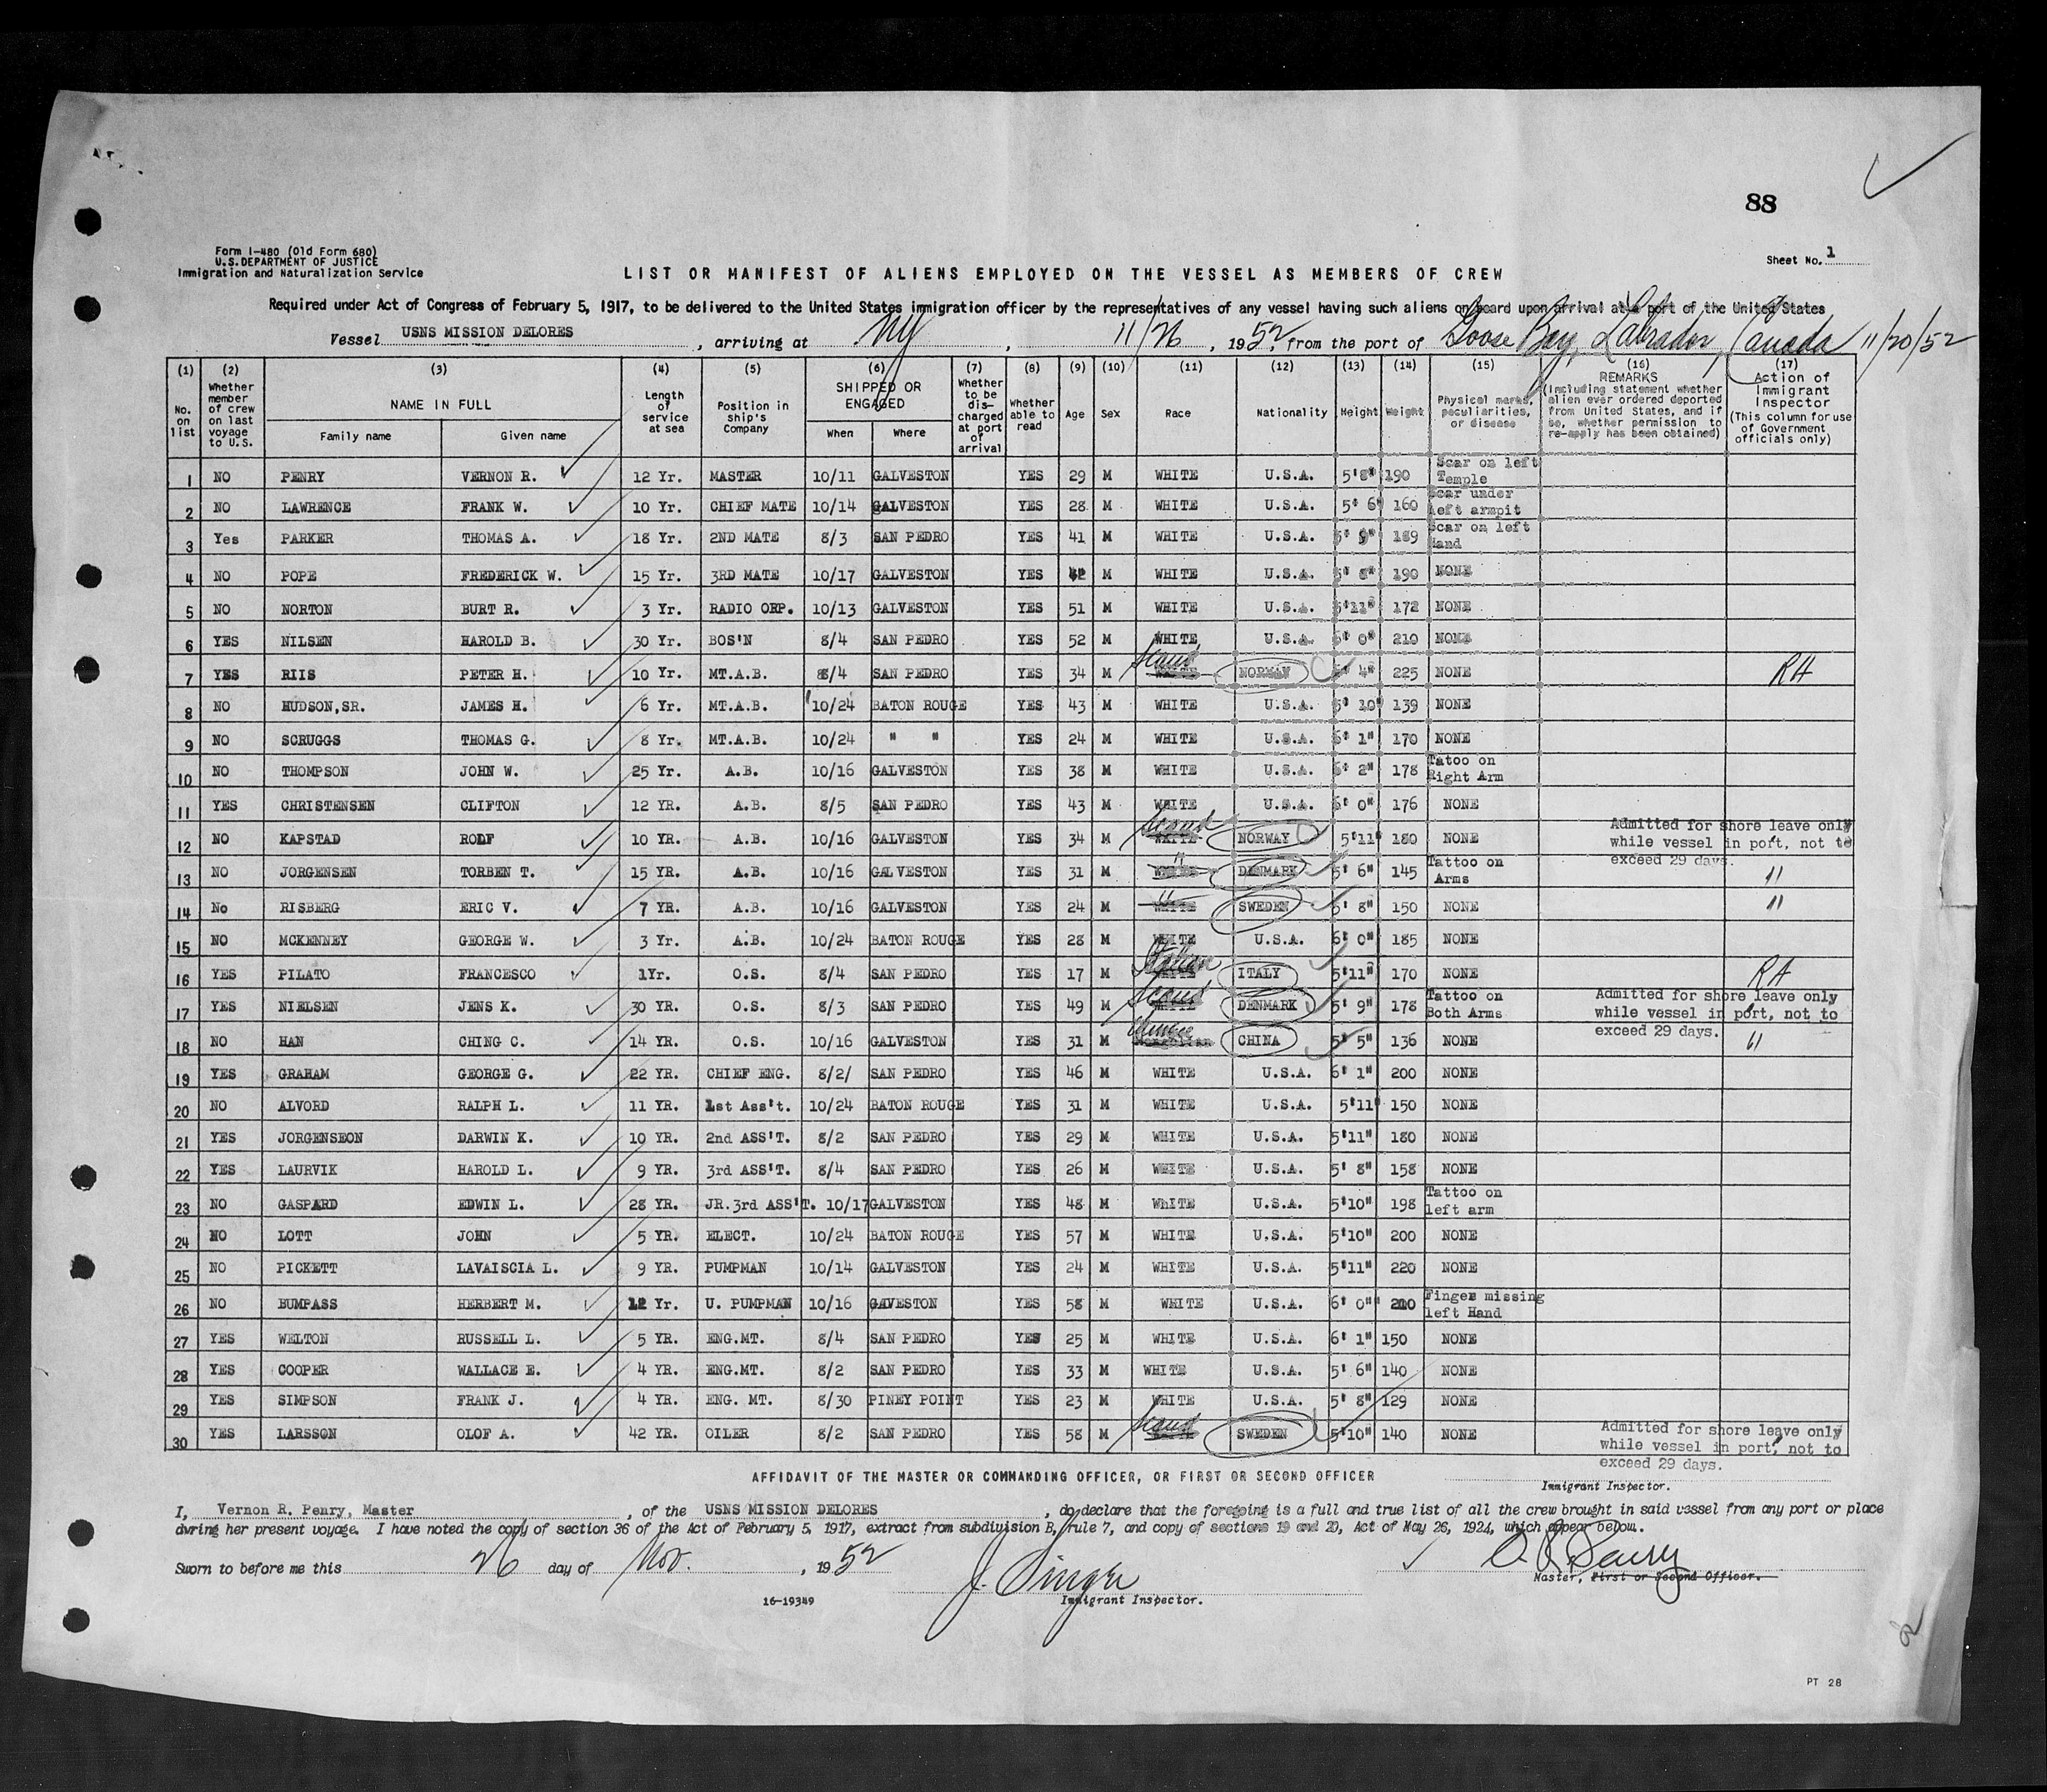 88
Form I-480 (Old Form 680)
U.S. DEPARTMENT OF JUSTICE
Immigration and Naturalization Service
Sheet No. 1
LIST OR MANIFEST OF ALIENS EMPLOYED ON THE VESSEL AS MEMBERS OF CREW
Required under Act of Congress of February 5, 1917, to be delivered to the United States immigration officer by the representatives of any vessel having such aliens on board upon arrival at a port of the United States
Vessel USNS MISSION DELORES, arriving at NY, 11/26, 1952, from the port of Goose Bay, Labrador, Canada 11/20/52
(1) No. on list (2) Whether member of crew on last voyage to U.S. (3) NAME IN FULL Family name Given name (4) Length of service at sea (5) Position in ship's Company (6) SHIPPED OR ENGAGED When Where (7) Whether to be discharged at port of arrival (8) Whether able to read (9) Age (10) Sex (11) Race (12) Nationality (13) Height (14) Weight (15) Physical marks, peculiarities, or disease (16) REMARKS (Including statement whether alien ever ordered deported from United States, and if so, whether permission to re-apply has been obtained) (17) Action of Immigrant Inspector (This column for use of Government officials only)
1 NO PENRY VERNON R. 12 Yr. MASTER 10/11 GALVESTON YES 29 M WHITE U.S.A. 5'8" 190 Scar on left Temple
2 NO LAWRENCE FRANK W. 10 Yr. CHIEF MATE 10/14 GALVESTON YES 28 M WHITE U.S.A. 5' 6" 160 Scar under left armpit
3 Yes PARKER THOMAS A. 18 Yr. 2ND MATE 8/3 SAN PEDRO YES 41 M WHITE U.S.A. 5' 9" 189 Scar on left Hand
4 NO POPE FREDERICK W. 15 Yr. 3RD MATE 10/17 GALVESTON YES 42 M WHITE U.S.A. 5' 8" 190 NONE
5 NO NORTON BURT R. 3 Yr. RADIO ORP. 10/13 GALVESTON YES 51 M WHITE U.S.A. 5'11" 172 NONE
6 YES NILSEN HAROLD B. 30 Yr. BOS'N 8/4 SAN PEDRO YES 52 M WHITE U.S.A. 6' 0" 210 NONE
7 YES RIIS PETER H. 10 Yr. MT.A.B. 8/4 SAN PEDRO YES 34 M WHITE Scand NORWAY 6' 4" 225 NONE RH
8 NO HUDSON,SR. JAMES H. 6 Yr. MT.A.B. 10/24 BATON ROUGE YES 43 M WHITE U.S.A. 5' 10" 139 NONE
9 NO SCRUGGS THOMAS G. 8 Yr. MT.A.B. 10/24 " " YES 24 M WHITE U.S.A. 6' 1" 170 NONE
10 NO THOMPSON JOHN W. 25 Yr. A.B. 10/16 GALVESTON YES 38 M WHITE U.S.A. 6' 2" 178 Tatoo on Right Arm
11 YES CHRISTENSEN CLIFTON 12 YR. A.B. 8/5 SAN PEDRO YES 43 M WHITE U.S.A. 6' 0" 176 NONE
12 NO KAPSTAD ROLF 10 YR. A.B. 10/16 GALVESTON YES 34 M WHITE Scand NORWAY 5'11" 180 NONE Admitted for shore leave only while vessel in port, not to exceed 29 days.
13 NO JORGENSEN TORBEN T. 15 YR. A.B. 10/16 GALVESTON YES 31 M WHITE " DENMARK 5' 6" 145 Tattoo on Arms "
14 No RISBERG ERIC V. 7 YR. A.B. 10/16 GALVESTON YES 24 M WHITE " SWEDEN 5' 8" 150 NONE "
15 NO MCKENNEY GEORGE W. 3 Yr. A.B. 10/24 BATON ROUGE YES 28 M WHITE U.S.A. 6' 0" 185 NONE
16 YES PILATO FRANCESCO 1Yr. O.S. 8/4 SAN PEDRO YES 17 M WHITE Italian ITALY 5'11" 170 NONE RH
17 YES NIELSEN JENS K. 30 YR. O.S. 8/3 SAN PEDRO YES 49 M WHITE Scand DENMARK 5' 9" 178 Tattoo on Both Arms Admitted for shore leave only while vessel in port, not to exceed 29 days.
18 NO HAN CHING C. 14 YR. O.S. 10/16 GALVESTON YES 31 M Chinese CHINA 5' 5" 136 NONE "
19 YES GRAHAM GEORGE G. 22 YR. CHIEF ENG. 8/2/ SAN PEDRO YES 46 M WHITE U.S.A. 6' 1" 200 NONE
20 NO ALVORD RALPH L. 11 YR. 1st Ass't. 10/24 BATON ROUGE YES 31 M WHITE U.S.A. 5'11" 150 NONE
21 YES JORGENSEON DARWIN K. 10 YR. 2nd ASS'T. 8/2 SAN PEDRO YES 29 M WHITE U.S.A. 5'11" 180 NONE
22 YES LAURVIK HAROLD L. 9 YR. 3rd ASS'T. 8/4 SAN PEDRO YES 26 M WHITE U.S.A. 5' 8" 158 NONE
23 NO GASPARD EDWIN L. 28 YR. JR.3rd ASS'T. 10/17 GALVESTON YES 48 M WHITE U.S.A. 5'10" 198 Tattoo on left arm
24 NO LOTT JOHN 5 YR. ELECT. 10/24 BATON ROUGE YES 57 M WHITE U.S.A. 5'10" 200 NONE
25 NO PICKETT LAVAISCIA L. 9 YR. PUMPMAN 10/14 GALVESTON YES 24 M WHITE U.S.A. 5'11" 220 NONE
26 NO BUMPASS HERBERT M. 12 Yr. U. PUMPMAN 10/16 GAVESTON YES 58 M WHITE U.S.A. 6' 0" 210 Finger missing left Hand
27 YES WELTON RUSSELL L. 5 YR. ENG.MT. 8/4 SAN PEDRO YES 25 M WHITE U.S.A. 6' 1" 150 NONE
28 YES COOPER WALLACE E. 4 YR. ENG.MT. 8/2 SAN PEDRO YES 33 M WHITE U.S.A. 5' 6" 140 NONE
29 YES SIMPSON FRANK J. 4 YR. ENG. MT. 8/30 PINEY POINT YES 23 M WHITE U.S.A. 5' 8" 129 NONE
30 YES LARSSON OLOF A. 42 YR. OILER 8/2 SAN PEDRO YES 58 M WHITE Scand SWEDEN 5'10" 140 NONE Admitted for shore leave only while vessel in port, not to exceed 29 days.
AFFIDAVIT OF THE MASTER OR COMMANDING OFFICER, OR FIRST OR SECOND OFFICER
Immigrant Inspector.
I, Vernon R. Penry, Master, of the USNS MISSION DELORES, do declare that the foregoing is a full and true list of all the crew brought in said vessel from any port or place
during her present voyage. I have noted the copy of section 36 of the Act of February 5, 1917, extract from subdivision B, rule 7, and copy of sections 19 and 20, Act of May 26, 1924, which appear below.
Sworn to before me this 26 day of Nov., 1952
Master, First or Second Officer.
16-19349
Immigrant Inspector.
PT 28